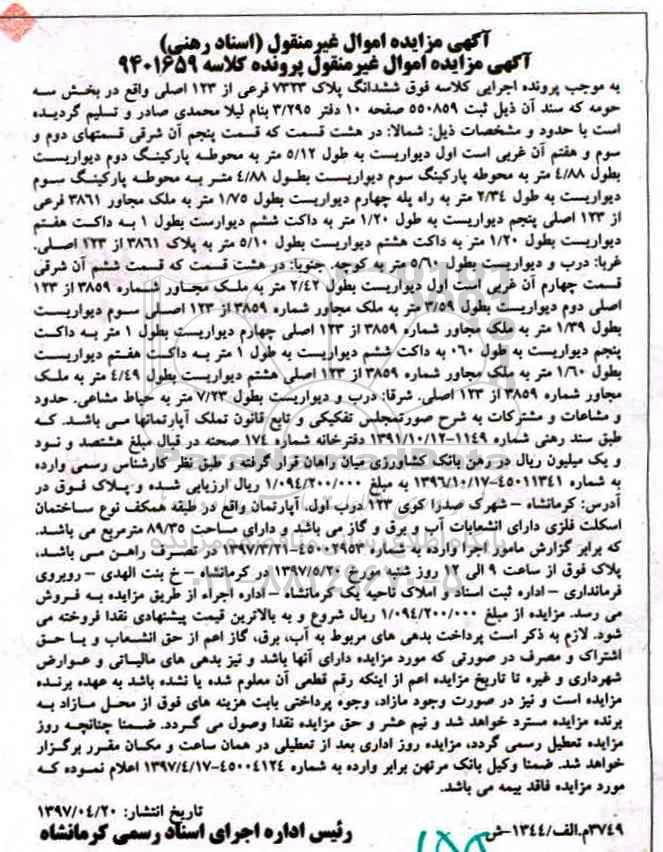 آگهی مزایده اموال غیرمنقول (اسناد رهنی)
آگهی مزایده اموال غیرمنقول پرونده کلاسه ۹۴۰۱۶۵۹
به موجب پرونده اجرایی کلاسه فوق ششدانگ پلاک ۷۳۲۳ فرعی از ۱۲۳ اصلی واقع در بخش سه
حومه که سند آن ذیل ثبت ۵۵۰۸۵۹ صفحه ۱۰ دفتر ۳/۲۹۵ بنام لیلا محمدی صادر و تسلیم گردیده
است با حدود و مشخصات ذیل: شمالا: در هشت قسمت که قسمت پنجم آن شرقی قسمتهای دوم و
سوم و هفتم آن غربی است اول دیواریست به طول ۵/۱۲ متر به محوطه پارکینگ دوم دیواریست
بطول ۴/۸۸ متر به محوطه پارکینگ سوم دیواریست بطول ۴/۸۸ متر به محوطه پارکینگ سوم
دیواریست به طول ۲/۳۴ متر به راه پله چهارم دیواریست بطول ۱/۷۵ متر به ملک مجاور ۳۸۶۱ فرعی
از ۱۲۳ اصلی پنجم دیواریست به طول ۱/۲۰ متر به داکت ششم دیوارست بطول ۱ به داکت هفتم
دیواریست بطول ۱/۲۰ متر به داکت هشتم دیواریست بطول ۵/۱۰ متر به پلاک ۳۸۶۱ از ۱۲۳ اصلی.
غربا: درب و دیواریست بطول ۵/۶۰ متر به کوچه. جنوبا: در هشت قسمت که قسمت ششم آن شرقی
قسمت چهارم آن غربی است اول دیواریست بطول ۲/۴۲ متر به ملک مجاور شماره ۳۸۵۹ از ۱۲۳
اصلی دوم دیواریست بطول ۳/۵۹ متر به ملک مجاور شماره ۳۸۵۹ از ۱۲۳ اصلی سوم دیواریست
بطول ۱/۳۹ متر به ملک مجاور شماره ۳۸۵۹ از ۱۲۳ اصلی چهارم دیواریست بطول ۱ متر به داکت
پنجم دیواریست به طول ۰۶۰ به داکت ششم دیواریست به طول ۱ متر به داکت هفتم دیواریست
بطول ۱/۶۰ متر به ملک مجاور شماره ۳۸۵۹ از ۱۲۳ اصلی هشتم دیواریست بطول ۴/۴۹ متر به ملک
مجاور شماره ۳۸۵۹ از ۱۲۳ اصلی. شرقا: درب و دیواریست بطول ۷/۲۳ متر به حیاط مشاعی. حدود
و مشاعات و مشترکات به شرح صورتمجلس تفکیکی و تابع قانون تملک آپارتمانها می باشد. که
طبق سند رهنی شماره ۱۱۴۹-۱۳۹۱/۱۰/۱۲ دفترخانه شماره ۱۷۴ صحنه در قبال مبلغ هشتصد و نود
و یک میلیون ریال در رهن بانک کشاورزی میان راهان قرار گرفته و طبق نظر کارشناس رسمی وارده
به شماره ۴۵۰۱۱۳۴۱-۱۳۹۶/۱۰/۱۷ به مبلغ ۱/۰۹۴/۲۰۰/۰۰۰ ریال ارزیابی شده و پلاک فوق در
آدرس: کرمانشاه - شهرک صدرا کوی ۱۲۳ درب اول. آپارتمان واقع در طبقه همکف نوع ساختمان
اسکلت فلزی دارای انشعابات آب و برق و گاز می باشد و دارای مساحت ۸۹/۳۵ مترمربع می باشد.
که برابر گزارش مامور اجرا وارده به شماره ۴۵۰۰۲۹۵۳-۱۳۹۷/۳/۲۱ در تصرف راهن می باشد،
پلاک فوق از ساعت ۹ الی ۱۲ روز شنبه مورخ ۱۳۹۷/۵/۲۰ در کرمانشاه - خ بنت الهدی - روبروی
فرمانداری - اداره ثبت اسناد و املاک ناحیه یک کرمانشاه - اداره اجراء از طریق مزایده به فروش
می رسد. مزایده از مبلغ ۱/۰۹۴/۲۰۰/۰۰۰ ریال شروع و به بالاترین قیمت پیشنهادی نقدا فروخته می
شود. لازم به ذکر است پرداخت بدهی های مربوط به آب، برق، گاز اعم از حق انشعاب و یا حق
اشتراک و مصرف در صورتی که مورد مزایده دارای آنها باشد و نیز بدهی های مالیاتی و عوارض
شهرداری و غیره تا تاریخ مزایده اعم از اینکه رقم قطعی آن معلوم شده یا نشده باشد به عهده برنده
مزایده است و نیز در صورت وجود مازاد، وجوه پرداختی بابت هزینه های فوق از محل مازاد به
برنده مزایده مسترد خواهد شد و نیم عشر و حق مزایده نقدا وصول می گردد. ضمنا چنانچه روز
مزایده تعطیل رسمی گردد، مزایده روز اداری بعد از تعطیلی در همان ساعت و مکان مقرر برگزار
خواهد شد. ضمنا وکیل بانک مرتهن برابر وارده به شماره ۴۵۰۰۴۱۲۴-۱۳۹۷/۴/۱۷ اعلام نموده که
مورد مزایده فاقد بیمه می باشد.
تاریخ انتشار: ۱۳۹۷/۰۴/۲۰
۳۷۴۹م.الف/۱۳۴۴-ش
رئیس اداره اجرای اسناد رسمی کرمانشاه
ParsNamadData
پایگاه اطلاع رسانی مناقصه و مزایده